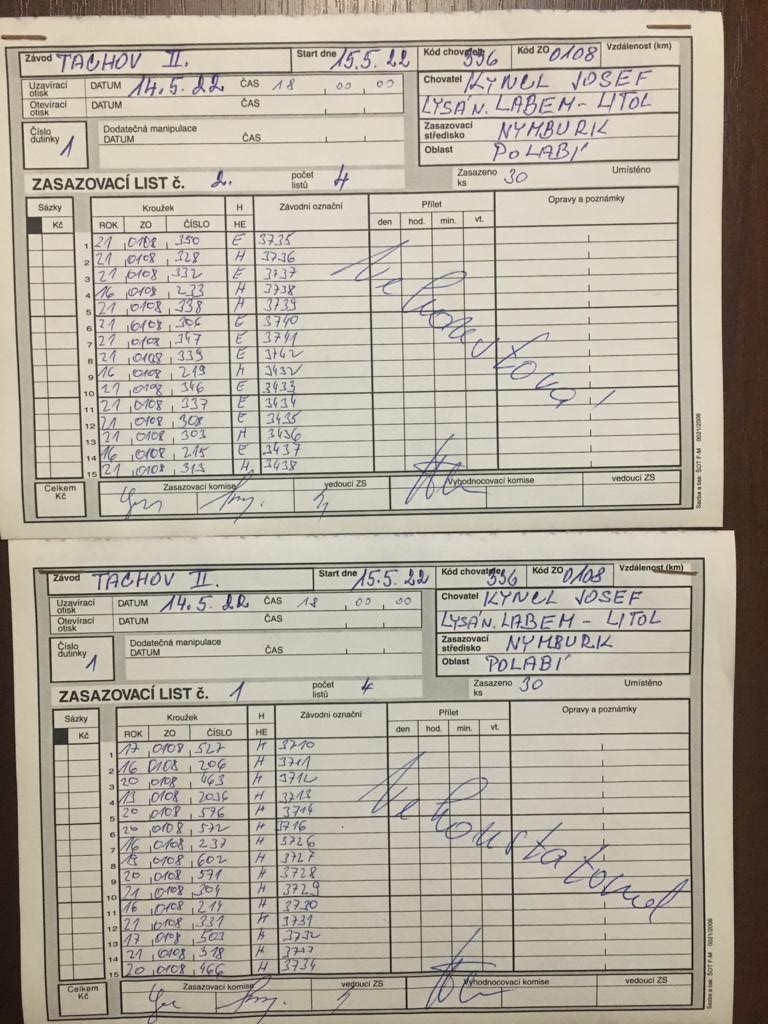 Závod TACHOV II. Start dne 15.5.22 Kód chovatele 556 Kód ZO 0108 Vzdálenost (km)
Uzavírací otisk DATUM 14.5.22 ČAS 18 00 00
Otevírací otisk DATUM ČAS
Chovatel KYNCL JOSEF
LYSÁ N. LABEM - LITOL
Číslo dutinky 1
Dodatečná manipulace
DATUM ČAS
Zasazovací středisko NYMBURK
Oblast POLABÍ
ZASAZOVACÍ LIST č. 2. počet listů 4 Zasazeno ks 30 Umístěno
Sázky Kroužek H Závodní označní Přílet Opravy a poznámky
Kč ROK ZO ČÍSLO HE den hod. min. vt.
1 21 0108 350 E 3735
2 21 0108 328 H 3736
3 21 0108 332 E 3737
4 16 0108 233 H 3738
5 21 0108 338 H 3739
6 21 0108 306 E 3740
7 21 0108 347 E 3741
8 21 0108 339 E 3742
9 16 0108 219 H 3432
10 21 0108 346 E 3433
11 21 0108 337 E 3434
12 21 0108 308 E 3435
13 21 0108 303 H 3436
14 16 0108 215 E 3437
15 21 0108 313 H 3438
Celkem Kč Zasazovací komise vedoucí ZS Vyhodnocovací komise vedoucí ZS
Sazba a tisk: ŠOT F-M 0021/2006
Závod TACHOV II. Start dne 15.5.22 Kód chovatele 556 Kód ZO 0108 Vzdálenost (km)
Uzavírací otisk DATUM 14.5.22 ČAS 18 00 00
Otevírací otisk DATUM ČAS
Chovatel KYNCL JOSEF
LYSÁ N. LABEM - LITOL
Číslo dutinky 1
Dodatečná manipulace
DATUM ČAS
Zasazovací středisko NYMBURK
Oblast POLABÍ
ZASAZOVACÍ LIST č. 1 počet listů 4 Zasazeno ks 30 Umístěno
Sázky Kroužek H Závodní označní Přílet Opravy a poznámky
Kč ROK ZO ČÍSLO HE den hod. min. vt.
1 17 0108 527 H 3710
2 16 0108 206 H 3711
3 20 0108 463 H 3712
4 13 0108 2036 H 3713
5 20 0108 596 H 3714
6 20 0108 572 H 3716
7 16 0108 237 H 3726
8 0108 602 H 3727
9 20 0108 571 H 3728
10 21 0108 304 H 3729
11 16 0108 214 H 3730
12 21 0108 331 H 3731
13 17 0108 503 H 3732
14 21 0108 318 H
15 20 0108 466 H 3734
Celkem Kč Zasazovací komise vedoucí ZS Vyhodnocovací komise vedoucí ZS
Sazba a tisk: ŠOT F-M 0021/2006